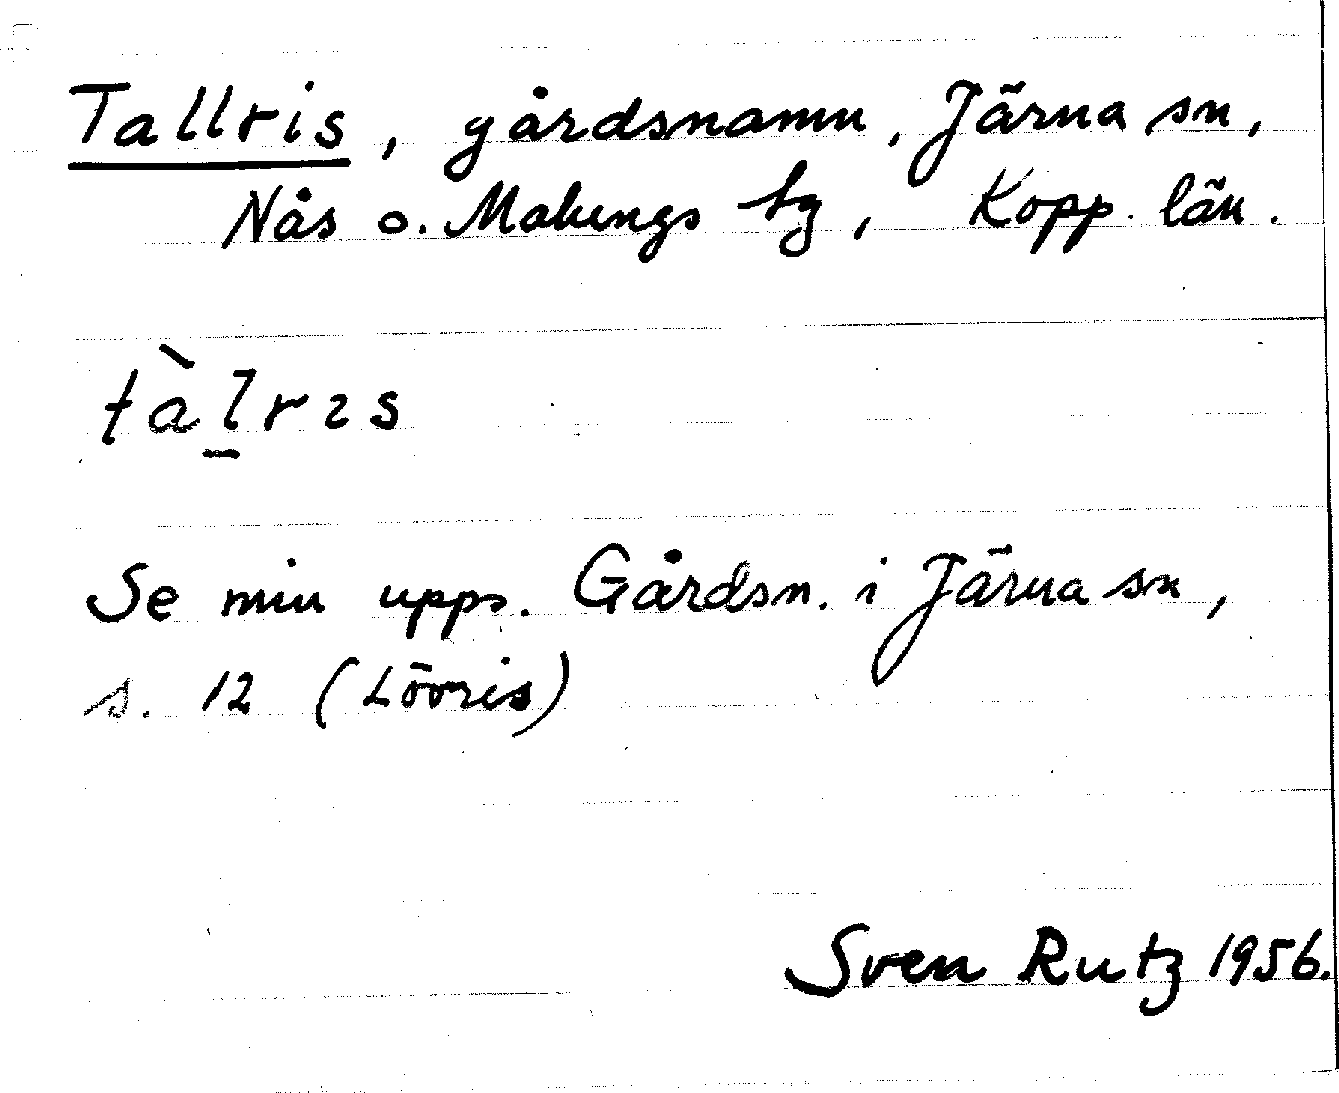 Tallris, gårdsnamn, Järna sn,
Nås o. Malungs tg, Kopp. län.
tàl̠rıs
Se min upps. Gårdsn. i Järna sn,
s. 12 (Lövris)
Sven Rutz 1956.